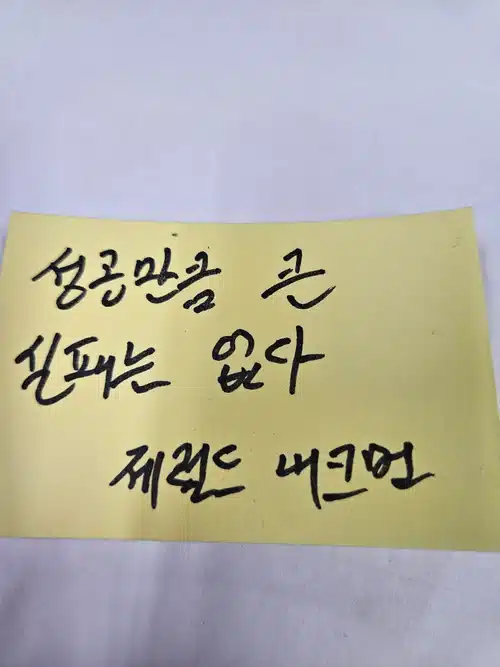 성공만큼 큰
실패는 없다
제럴드 내크먼